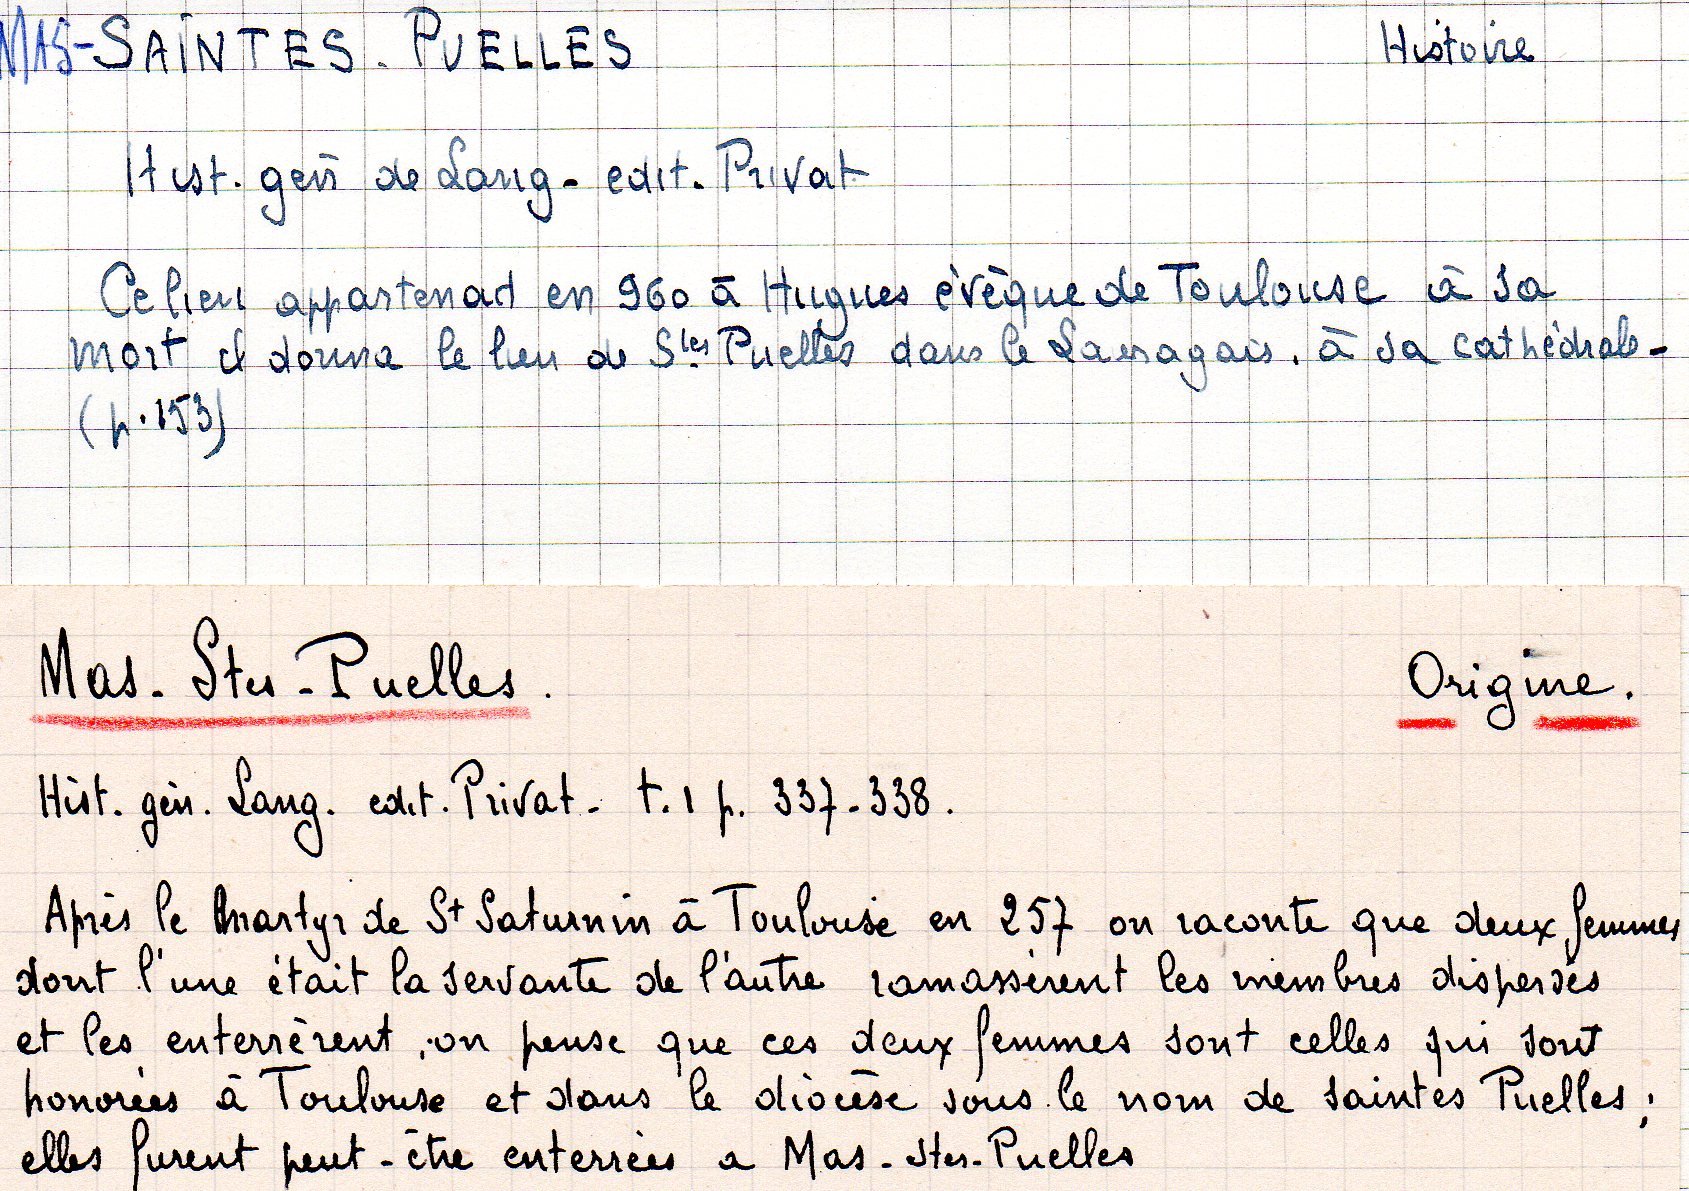 MAS-SAINTES. PUELLES Histoire
Hist. gén de Lang - edit. Privat
Ce lieu appartenait en 960 à Hugues évèque de Toulouse à sa
mort il donna le lieu de Stes Puelles dans le Lauragais. à sa cathédrale -
(p. 153)
Mas - Stes - Puelles. Origine.
Hist. gén. Lang. edit. Privat - t. 1 p. 337-338.
Après le martyr de St Saturnin à Toulouse en 257 on raconte que deux femmes
dont l'une était la servante de l'autre ramassèrent les membres dispersés
et les enterrèrent, on pense que ces deux femmes sont celles qui sont
honorées à Toulouse et dans le diocèse sous le nom de saintes Puelles ;
elles furent peut-être enterrées a Mas - Stes - Puelles